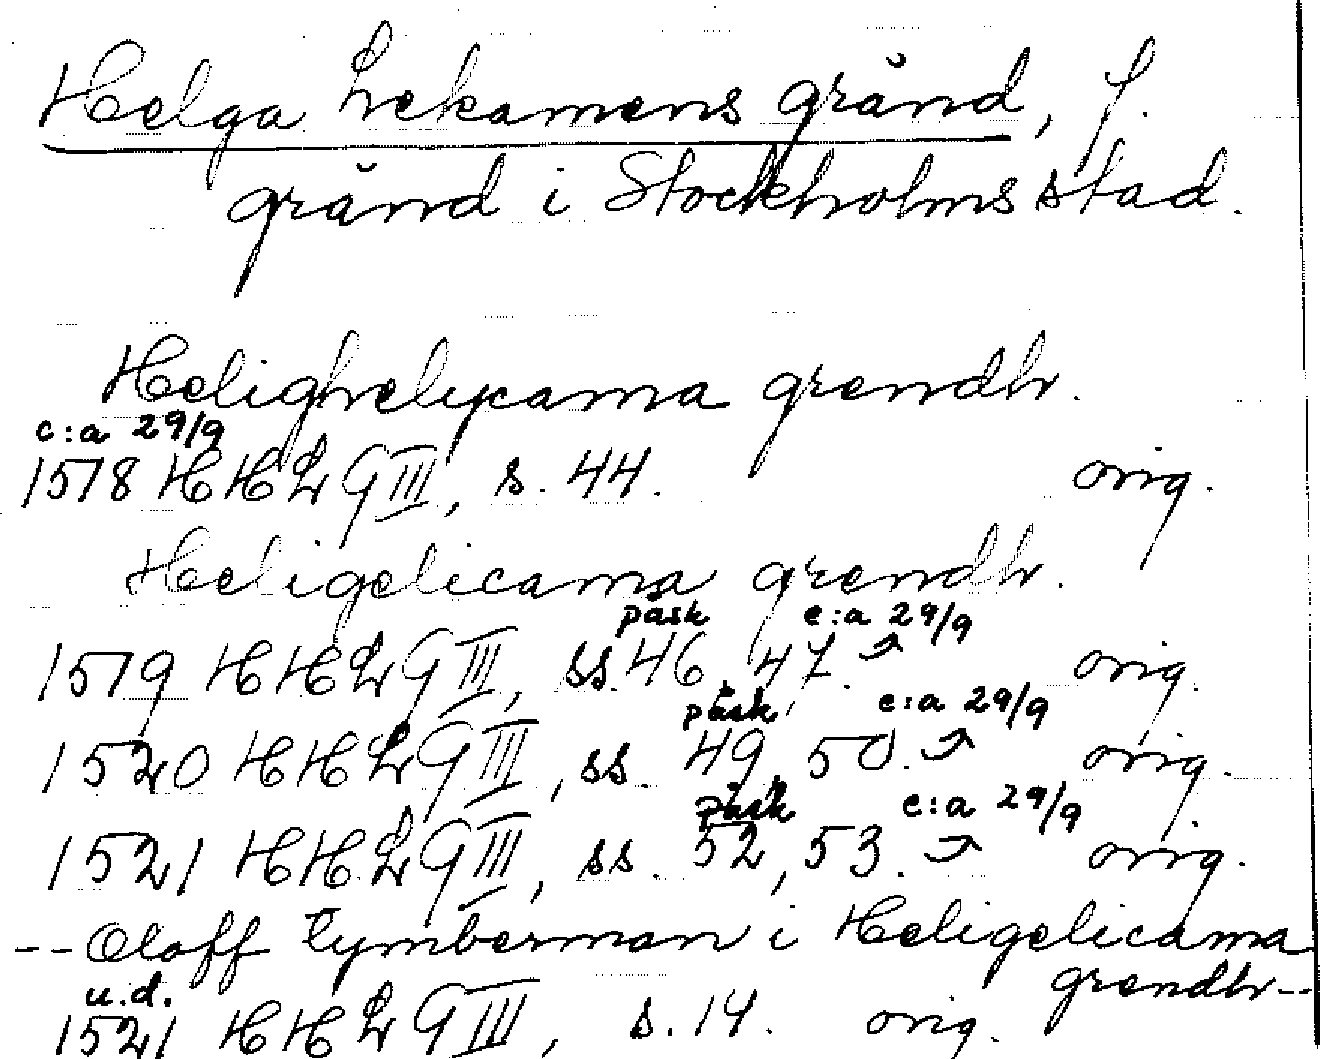 Helga Lekamens gränd, f.
gränd i Stockholms stad.
Helighelycama grendh.
c:a 29/9
1518 HHLG III, s. 44. orig.
Heligelicama grendh.
påsk c:a 29/9
1519 HHLG III, ss. 46, 47. orig.
påsk c:a 29/9
1520 HHLG III, ss. 49, 50. orig.
påsk c:a 29/9
1521 HHLG III, ss. 52, 53. orig.
-- Oloff tymberman i Heligelicama
grendh --
u.d.
1521 HHLG III, s. 14. orig.